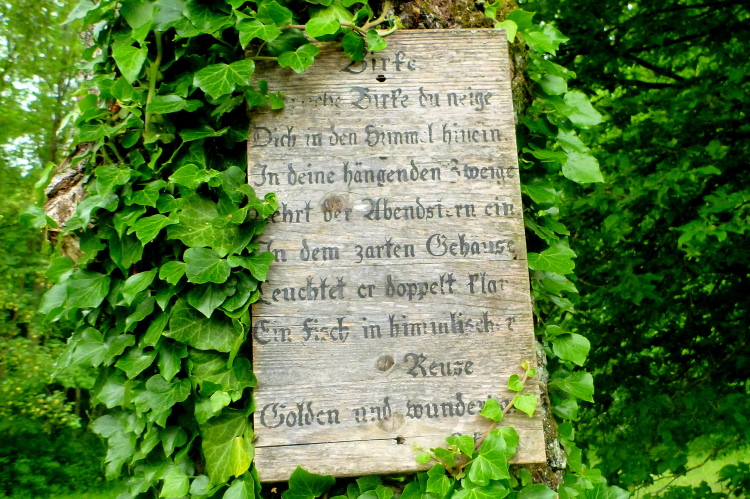 Birke
Birke du neige
Dich in den Himmel hinein
In deine hängenden Zweige
kehrt der Abendstern ein.
In dem zarten Gehäuse
Leuchtet er doppelt klar
Ein Fisch in himmlischer
Reuse
Golden und